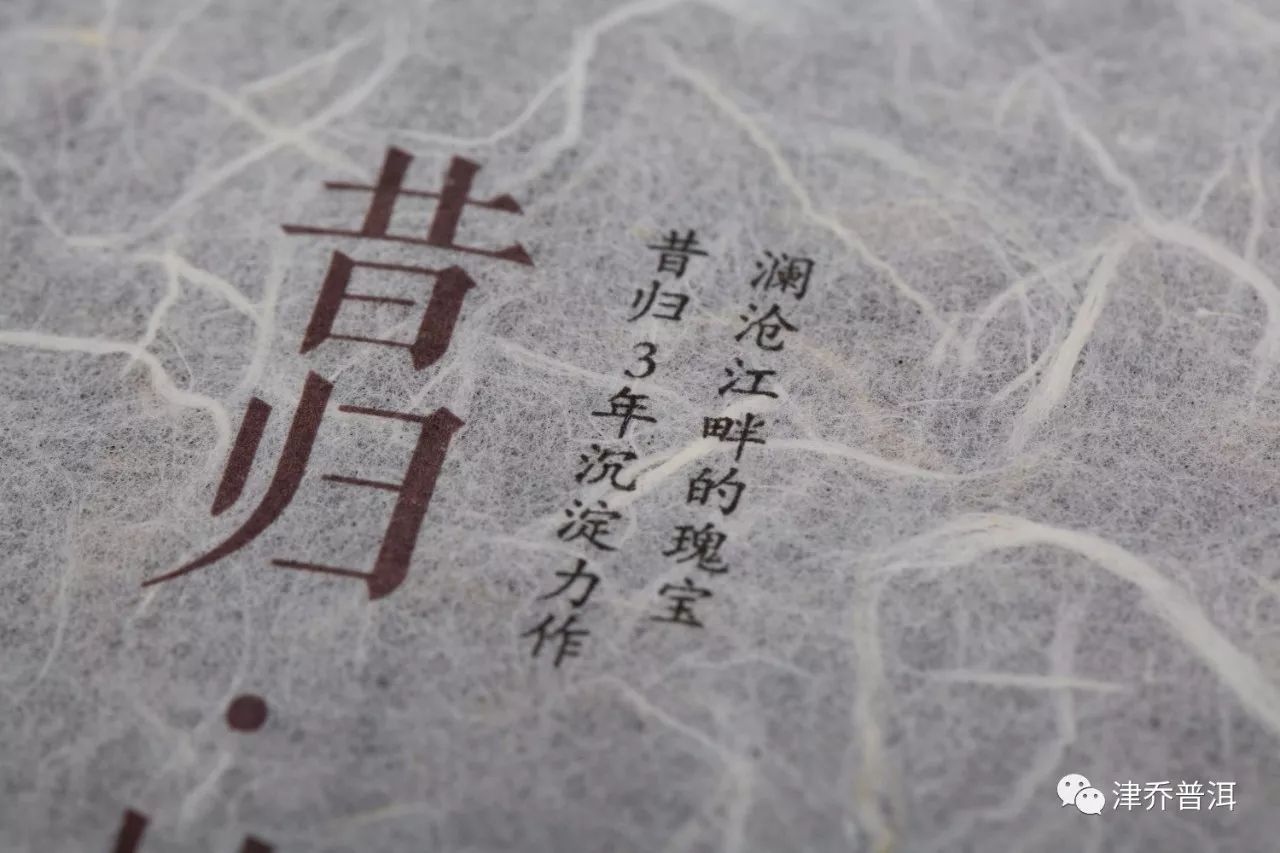 澜沧江畔的瑰宝
昔归3年沉淀力作
昔归·
津乔普洱